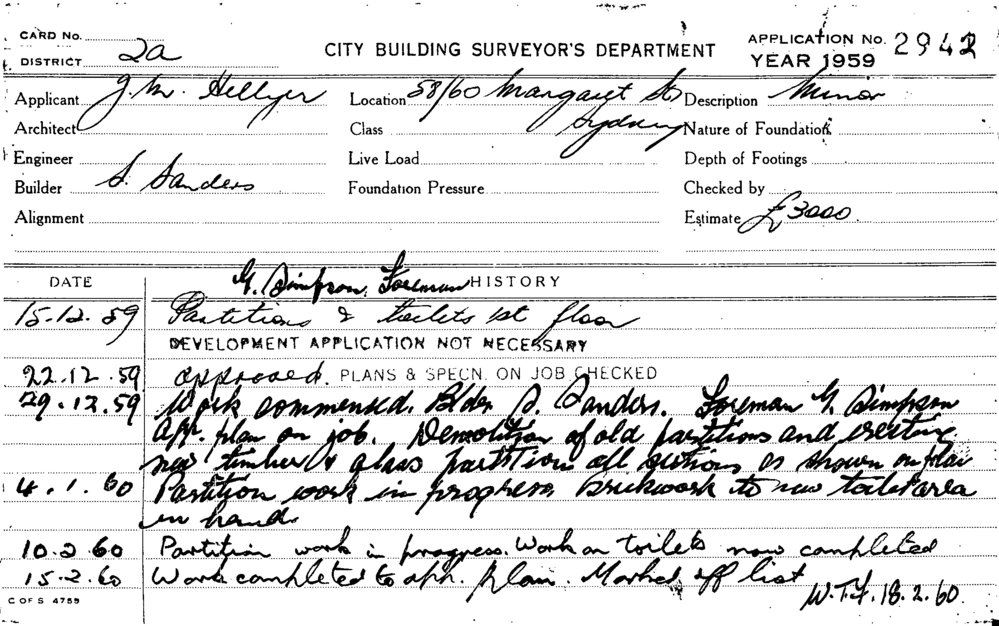 CARD No.
DISTRICT 2a
CITY BUILDING SURVEYOR'S DEPARTMENT
APPLICATION No. 2942
YEAR 1959
Applicant J. M. Hellyer Location 58/60 Margaret St Description Minor
Architect Class Sydney Nature of Foundation
Engineer Live Load Depth of Footings
Builder S. Sanders Foundation Pressure Checked by
Alignment Estimate £3000.
DATE G. Simpson, Foreman HISTORY
15.12.59 Partitions & toilets 1st floor
DEVELOPMENT APPLICATION NOT NECESSARY
22.12.59 approved. PLANS & SPECN. ON JOB CHECKED
29.12.59 Work commenced. Blder S. Sanders. Foreman G. Simpson
App. plan on job. Demolition of old partitions and erecting
new timber & glass partitions all sections as shown on plan
4.1.60 Partition work in progress Brickwork to new toilet area
in hand.
10.2.60 Partition work in progress. Work on toilets now completed
15.2.60 Work completed to app. plan. Marked off list
C OF S 4759 W.T.F. 18.2.60.